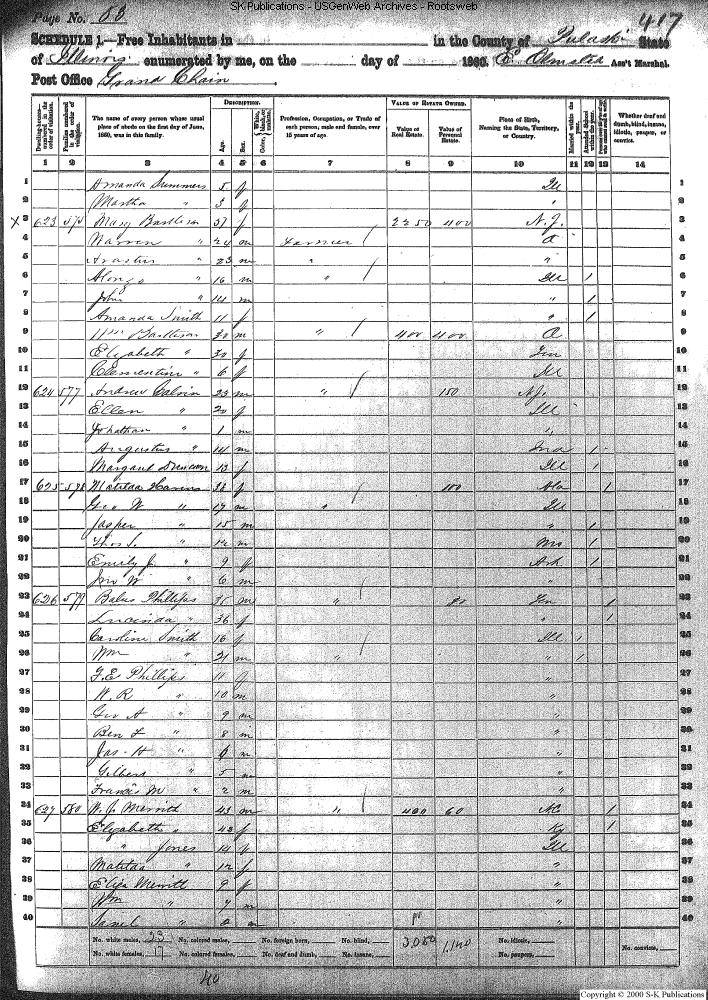 SK Publications - USGenWeb Archives - Rootsweb
Page No. 417
SCHEDULE 1.—Free Inhabitants in in the County of Pulaski State
of Illinois enumerated by me, on the day of 1860. E. Olmsted Ass't Marshal.
Post Office Grand Chain
DESCRIPTION. VALUE OF ESTATE OWNED.
Dwelling-houses—numbered in the order of visitation. Families numbered in the order of visitation. The name of every person whose usual place of abode on the first day of June, 1860, was in this family. Age. Sex. Color, White, black, or mulatto. Profession, Occupation, or Trade of each person, male and female, over 15 years of age. Value of Real Estate. Value of Personal Estate. Place of Birth, Naming the State, Territory, or Country. Married within the year. Attended School within the year. Whether deaf and dumb, blind, insane, idiotic, pauper, or convict.
1 2 3 4 5 6 7 8 9 10 11 12 13 14
1 Amanda Summers 5 f Ill 1
2 Martha " 3 f " 2
X 3 623 Mary Bartleson 37 f 2250 400 N.J. 3
4 Warren " 24 m Farmer O 4
5 " 23 m " " 5
6 Alonzo " 16 m " Ill 1 6
7 John " 14 m " 1 7
8 Amanda Smith 11 f " 1 8
9 Wm Bartleson 30 m " 400 400 O 9
10 Elizabeth " 30 f 10
11 Clementine " 6 f Ill 11
12 624 577 Andrew Calvin 23 m " 150 N.J. 12
13 Ellen " 20 f Ill 13
14 Johathan " 1 m " 14
15 Augustus " 14 m Ind 1 15
16 Margaret Duncan 13 f Ill 1 16
17 625 578 Matilda 38 f 100 1 17
18 Geo W " 17 m " Ill 18
19 Jasper " 15 m " 1 19
20 Thos S. " 12 m Mo 1 20
21 Emily J. " 9 f Ark 1 21
22 Jno W " 6 m " 22
23 626 579 Phillips 35 m " Ten 1 23
24 Lucinda " 36 f " 1 24
25 Caroline Smith 16 f Ill 1 25
26 Wm " 21 m " " 1 26
27 G.E Phillips 11 f " 27
28 W. R " 10 m " 28
29 Geo A " 9 m " 29
30 Ben F " 8 m " 30
31 Jas. H " 6 m " 31
32 Gilbert " 5 m " 32
33 Francis M " 2 m " 33
34 627 580 W. J. Merritt 43 m " 400 60 NC 1 34
35 Elizabeth " 43 f Ky 1 35
36 " Jones 14 f Ill 36
37 Matilda " 12 f " 37
38 Eliza Merritt 9 f " 38
39 Wm " 7 m " 39
40 " m " 40
No. white males, 23 No. colored males, No. foreign born, No. blind, 3,050 1,140 No. idiotic,
No. white females, 17 No. colored females, No. deaf and dumb, No. insane, No. paupers, No. convicts,
40
Copyright © 2000 S-K Publications